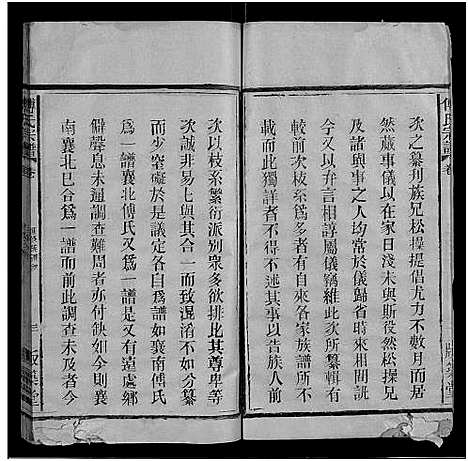 傅氏宗譜
卷
次之纂刋族兄松操提倡尤力不數月而居
然蕆事儀以在家日淺未與斯役然松操兄
及諸與事之人均於儀歸省時來相往還
今又以弁言相諄屬儀竊維此次所纂輯有
較前次枝系爲多者有來各家族譜所不
載而此獨詳者不得不述其事以告族人前
次以枝系繁衍派別衆多欲排比其尊卑等
次誠非易七與其合一而致混淆不如分纂
而少窒礙於是議定各自爲譜如襄南傅氏
爲一譜襄北傅氏又爲一譜又有遠處鄉
僻聲息未通調查難周者亦付缺如今則襄
南襄北已合爲一譜而前此調查未及者今
傅氏宗譜
卷
三
版築堂